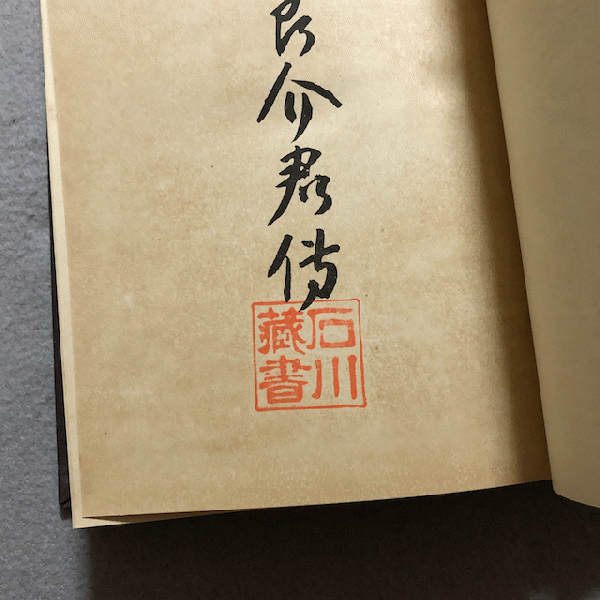 良介君傳
石川
藏書